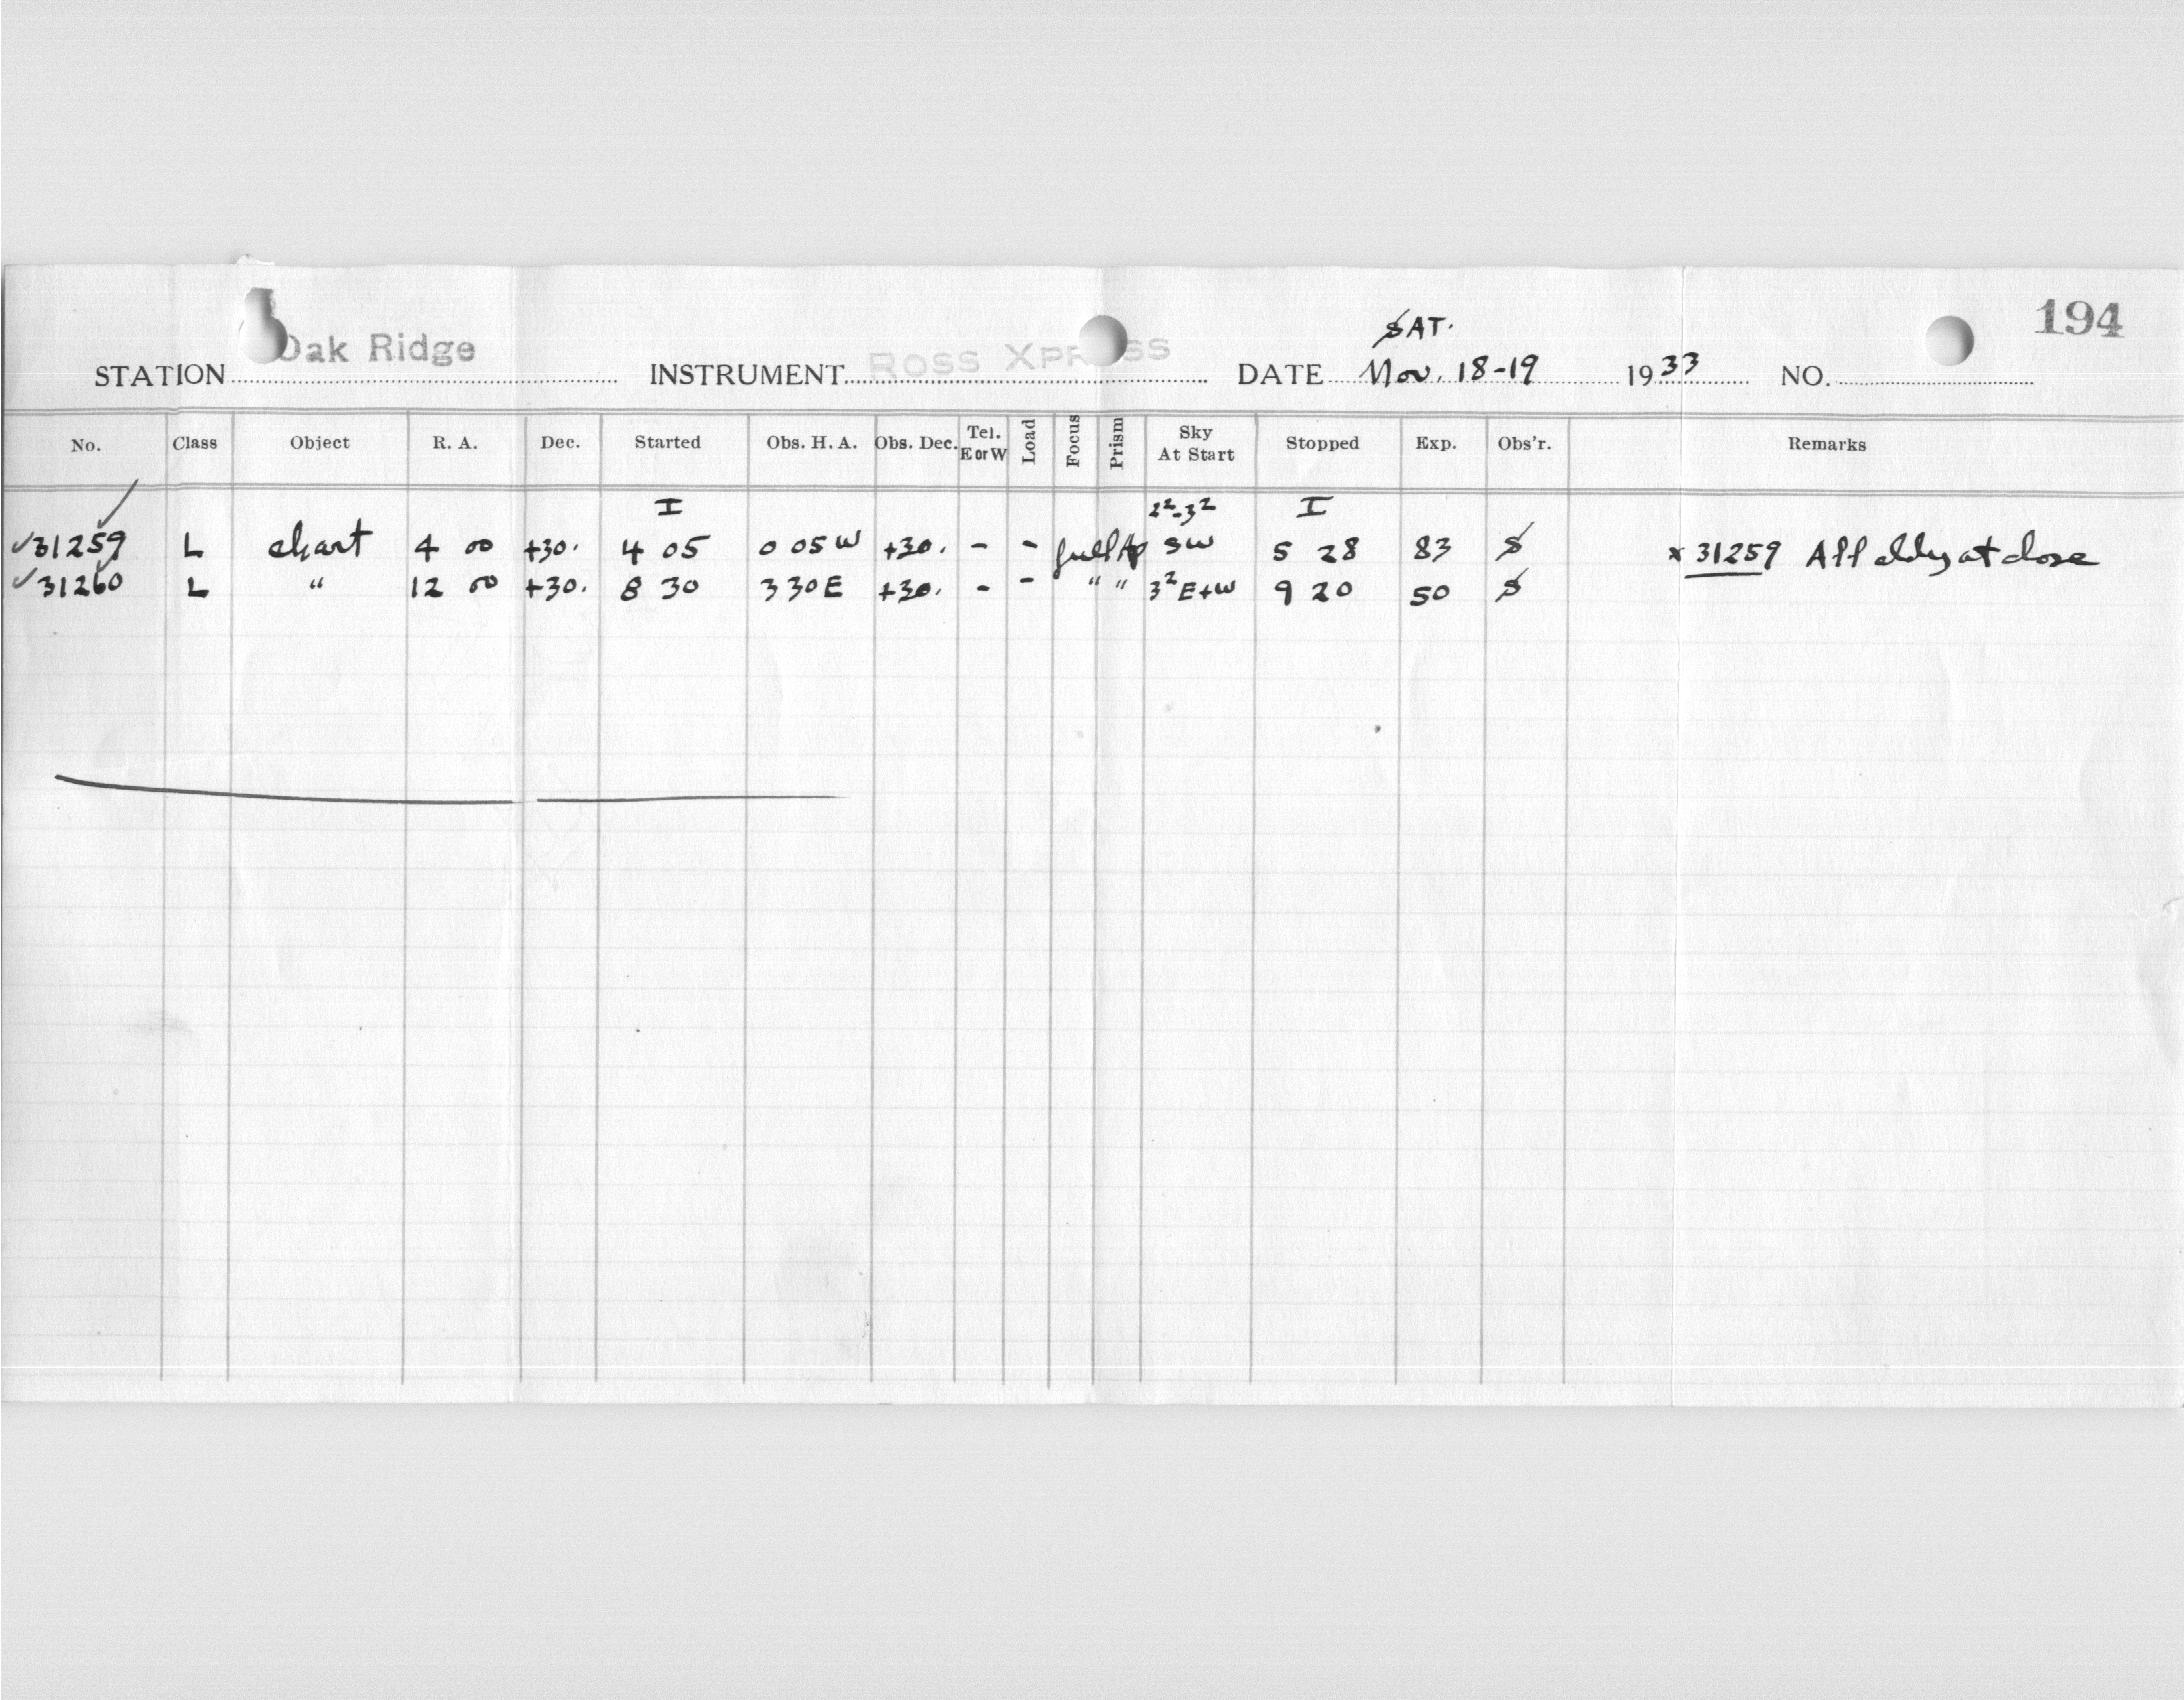 194
SAT.
STATION Oak Ridge INSTRUMENT Ross Xpress DATE Nov. 18-19 1933 NO.
No. Class Object R. A. Dec. Started Obs. H. A. Obs. Dec. Tel. E or W Load Focus Prism Sky At Start Stopped Exp. Obs'r. Remarks
I 2²-3² I
31259 L chart 4 00 +30. 4 05 0 05 W +30. - - full Ap SW 5 28 83 S x 31259 All cldy at close
31260 L " 12 00 +30. 8 30 3 30 E +30. - - " " 3² E+W 9 20 50 S